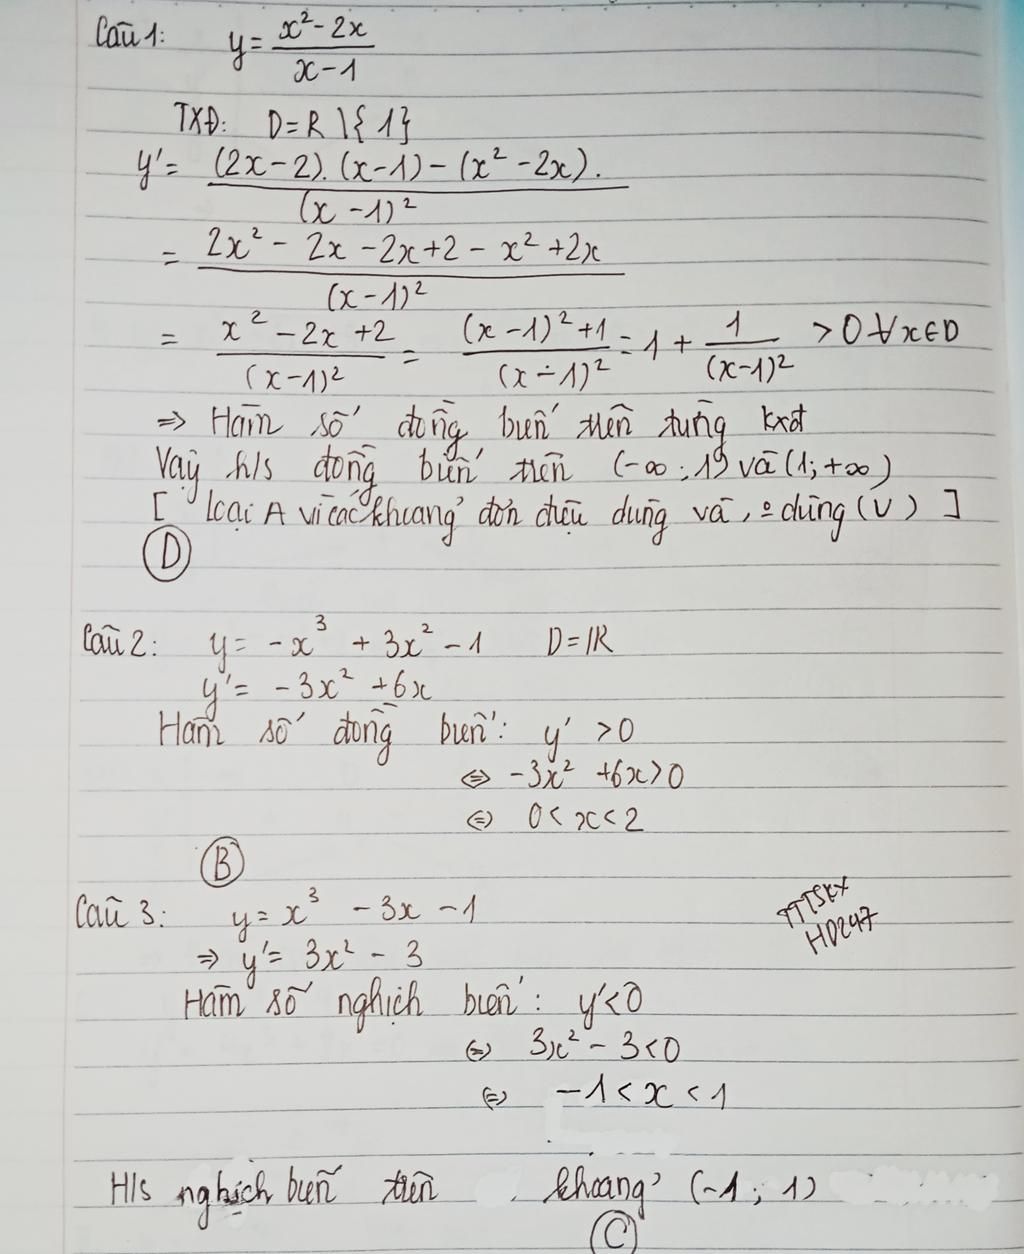 Câu 1: y = \frac{x² - 2x}{x - 1}
TXĐ: D = R \ {1}
y' = \frac{(2x - 2).(x - 1) - (x² - 2x).}{(x - 1)²}
= \frac{2x² - 2x - 2x + 2 - x² + 2x}{(x - 1)²}
= \frac{x² - 2x + 2}{(x - 1)²} = \frac{(x - 1)² + 1}{(x - 1)²} = 1 + \frac{1}{(x - 1)²} > 0 ∀x∈D
⇒ Hàm số đồng biến trên từng kxđ
Vậy h/s đồng biến trên (-∞; 1) và (1; +∞)
[ Loại A vì các khoảng đơn điệu dùng và, o dùng (U) ]
D
Câu 2: y = -x³ + 3x² - 1 D = ℝ
y' = -3x² + 6x
Hàm số đồng biến: y' > 0
⇔ -3x² + 6x > 0
⇔ 0 < x < 2
B
Câu 3: y = x³ - 3x - 1
TTTSKX
HD247
⇒ y' = 3x² - 3
Hàm số nghịch biến: y' < 0
⇔ 3x² - 3 < 0
⇔ -1 < x < 1
H/s nghịch biến trên khoảng (-1; 1)
C